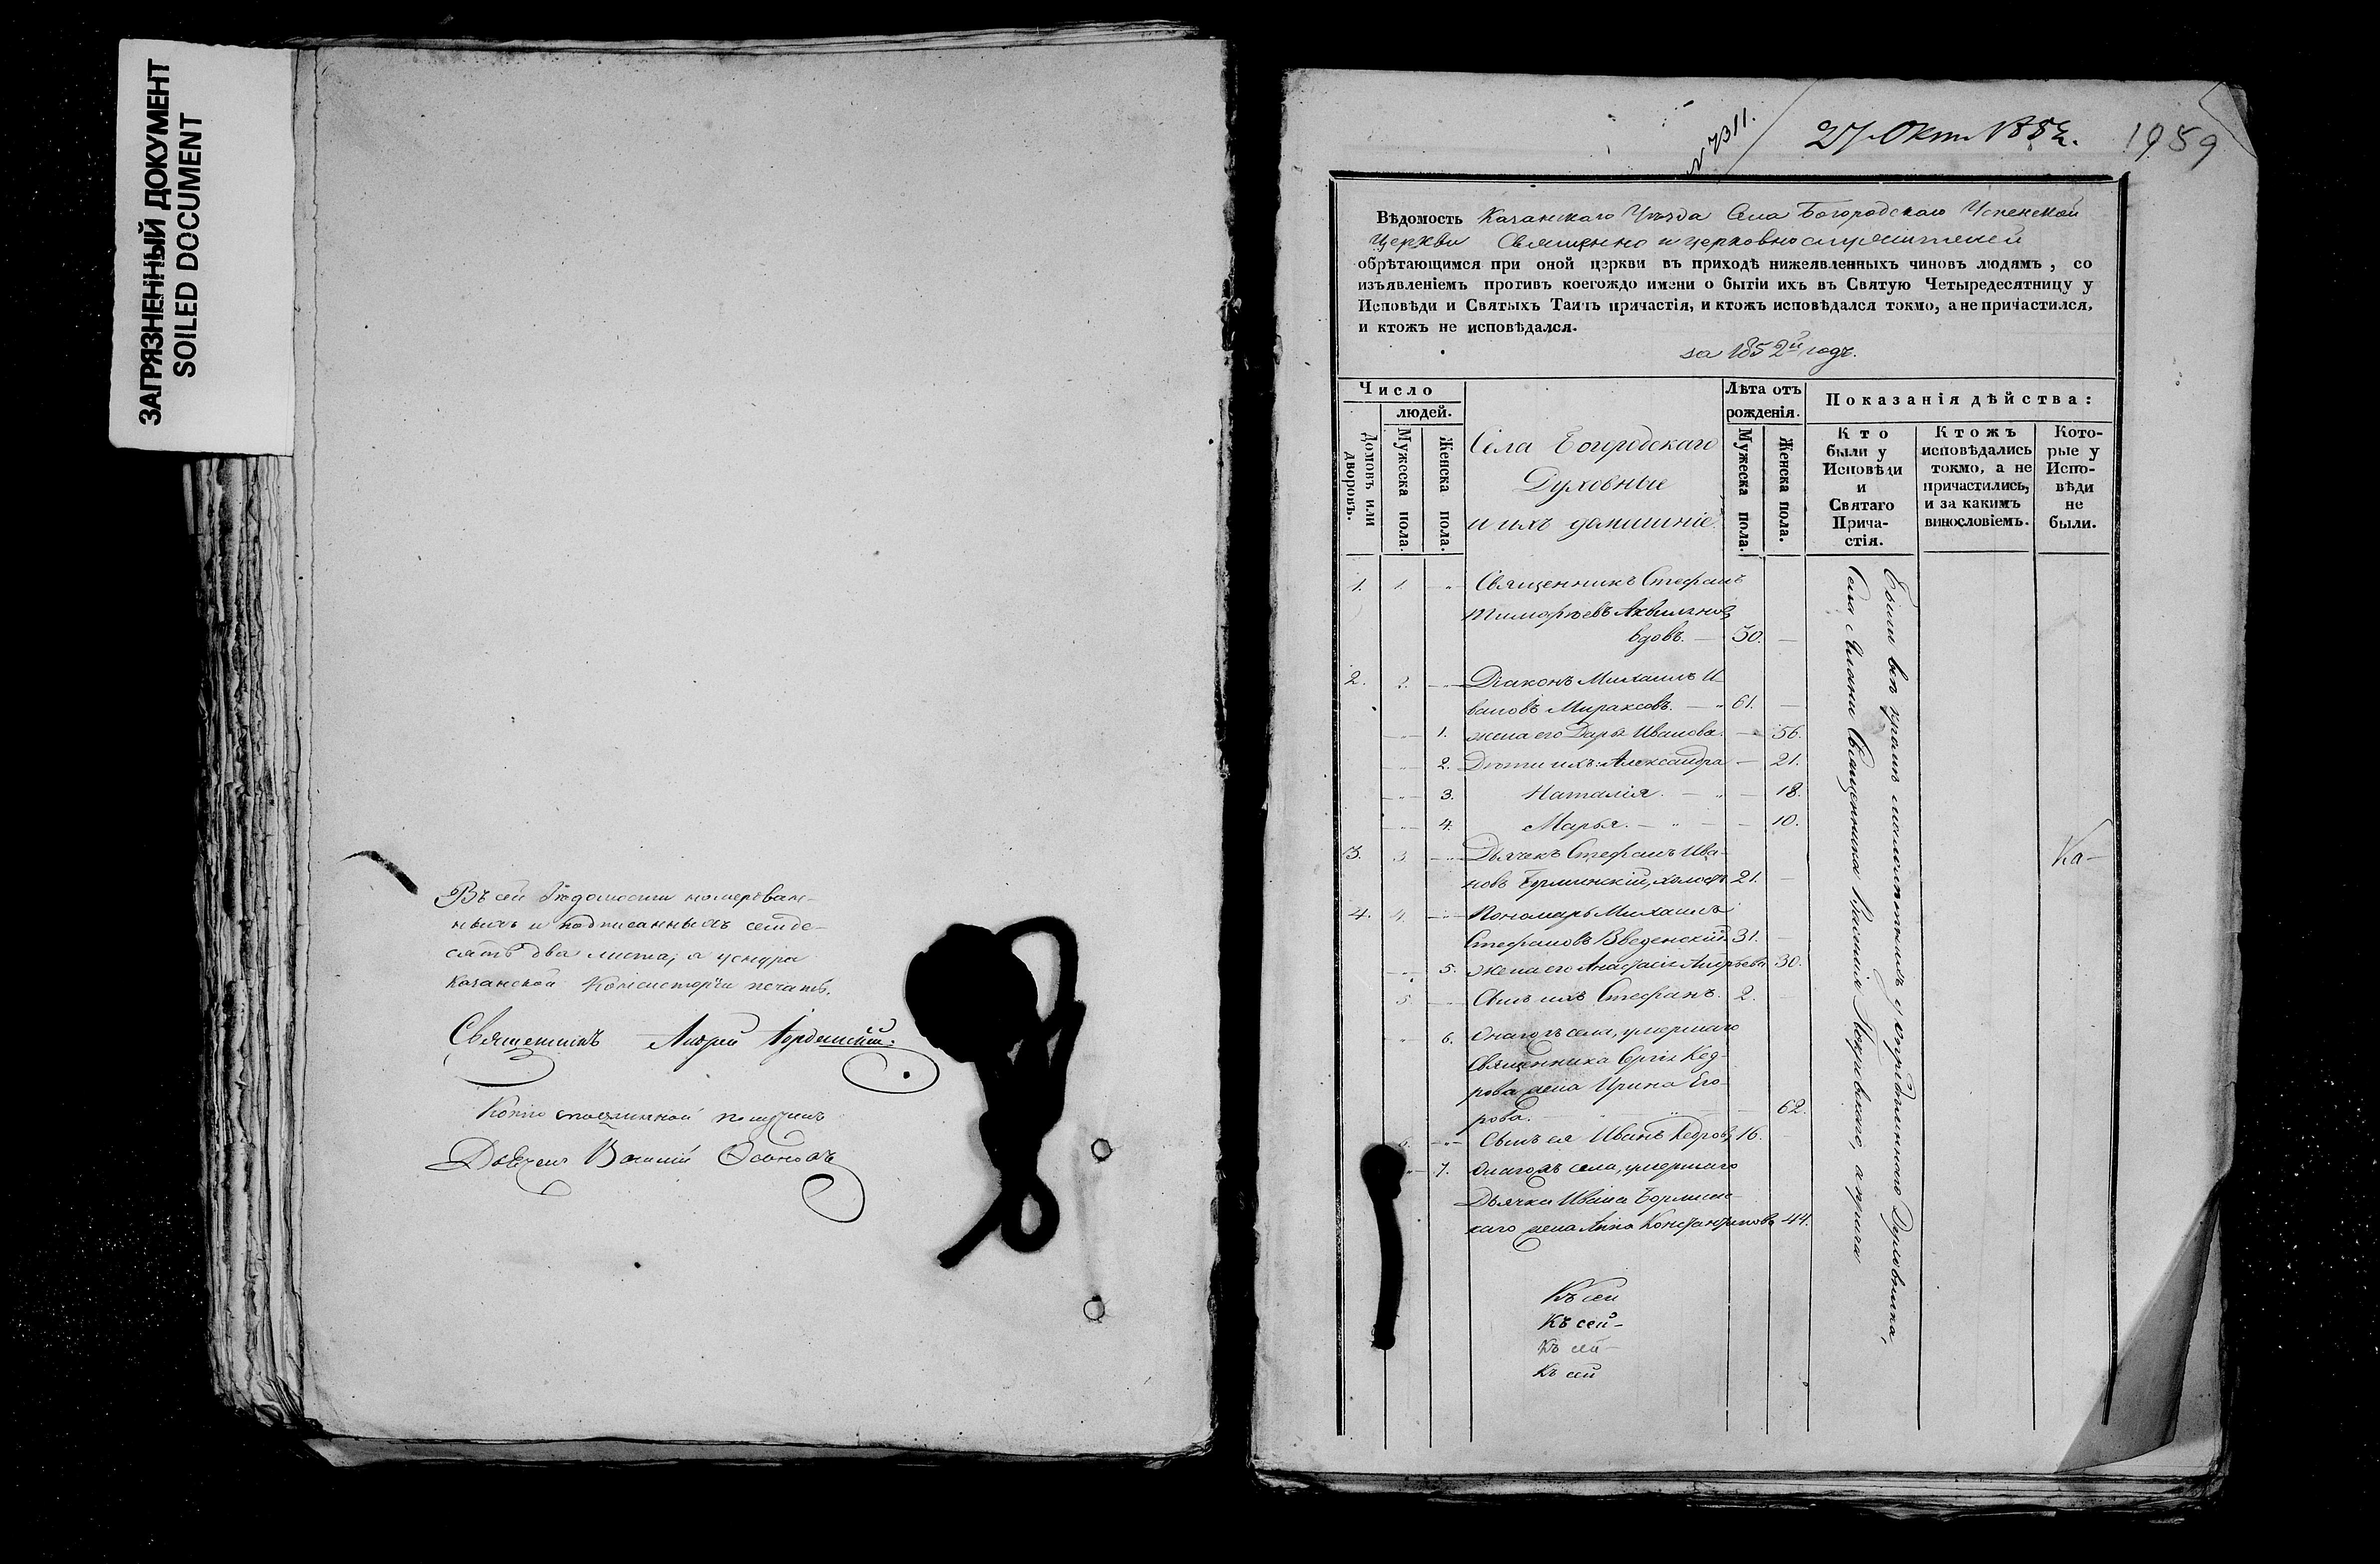 ЗАГРЯЗНЕННЫЙ ДОКУМЕНТ
SOILED DOCUMENT
Въ сей Ведомости номерован-
ныхъ и подписанныхъ семде-
сять два листа, а уснура
Казанской Консисторіи печать.
Священникъ Андрей
Копію съ подлинной получилъ
Дьячекъ Василий
N 7311.
27 Окт. 1852.
1959
Вѣдомость Казанскаго Уѣзда Села Богородскаго Успенской
Церкви Священно и церковнослужителей
обрѣтающимся при оной церкви въ приходѣ нижеявленныхъ чиновъ людямъ, со
изъявленіемъ противъ коегождо имени о бытіи ихъ въ Святую Четыредесятницу у
Исповѣди и Святыхъ Таинъ причастія, и ктожъ исповѣдался токмо, а не причастился,
и ктожъ не исповѣдался.
за 1852й годъ.
Число
людей.
Домовъ или дворовъ.
Мужеска пола.
Женска пола.
Села Богородскаго
Духовные
и ихъ домашніе.
Лѣта отъ
рожденія.
Мужеска пола.
Женска пола.
Показанія дѣйства:
Кто
были у
Исповѣди
и
Святаго
Прича-
стія.
Ктожъ
исповѣдались
токмо, а не
причастились,
и за какимъ
винословіемъ.
Кото-
рые у
Испо-
вѣди
не
были.
1. 1. Священникъ Стефанъ
Тимофѣевъ
вдовъ. 50.
2. 2. Діаконъ Михаилъ И-
вановъ Мираксовъ. 61.
1. жена его Дарья Иванова. 56.
2. Дѣти ихъ: Александра 21.
3. Наталія. 18.
4. Марья. 10.
3. 3. Дьячекъ Стефанъ Ива-
новъ Бурминскій, холостъ 21.
4. 4. Пономарь Михаилъ
Стефановъ Введенскій 31.
5. жена его Анастасія Андреева 30.
5. Сынъ ихъ Стефанъ. 2.
6. Онагожъ села, умершаго
Священника Сергія Кед-
рова жена Ирина Его-
рова. 62.
6. Сынъ ея Иванъ Кедровъ 16.
7. Онагожъ села, умершаго
Дьячка Ивана Бормин-
скаго жена Анна Константинова 44.
Были всѣ кромѣ малолѣтнихъ у Духовника,
Села Священника Василія Покровскаго, а
Ка-
Къ сей
Къ сей-
Къ сей-
Къ сей